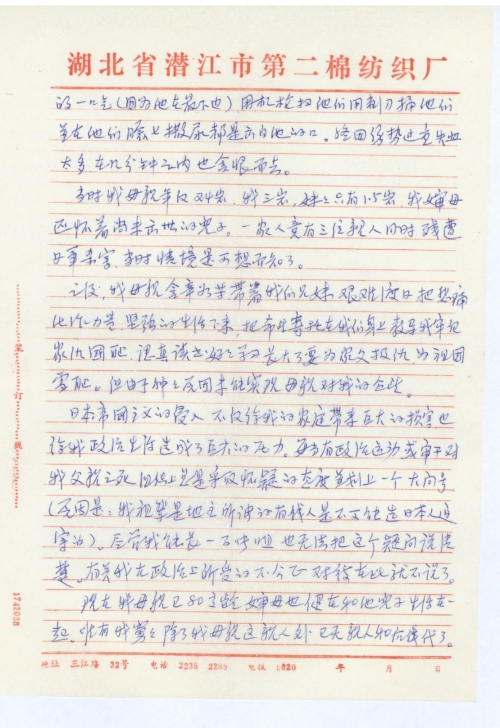 湖北省潜江市第二棉纺织厂
的一口气(因为他在最下边)用机枪扫他们用刺刀捅他们
并在他们脸上撒尿都是亲自他的口。终因伤势过重失血
太多在几分钟之内也含恨而去。
当时我母亲年仅24岁,我三岁,妹妹只有1.5岁,我婶母
还怀着尚未出世的儿子。一家人竟有三位亲人同时残遭
日军杀害,当时情境是可想而知了。
之后,我母亲含辛茹苦带着我们兄妹艰难度日把悲痛
化作力量,坚强的生活下来,把希望寄托在我们身上教导我牢记
家仇国耻,认真读书好好学习长大了要为家父报仇,为祖国
雪耻。但由于种种原因未能实现母亲对我的
日本帝国主义的侵入不仅给我的家庭带来巨大的损害也
给我政治生活造成了巨大的压力。每当有政治运动或审干对
我父亲之死组织上总是采取怀疑的态度并划上一个大问号
(原因是:我祖辈是地主所谓的有钱人是不可能遭日本人迫
害的)。尽管我能长一万张咀也无法把这个疑问说清
楚。有关我在政治上所受的不公正对待在此就不说了。
现在我母亲已80高龄婶母也健在和他儿子生活在一
起。唯有我 除了我母亲这亲人外已无亲人和后代了。
装订线
1742038
地址 三江路 32号 电话 2238 2288 电报 1820 年 月 日